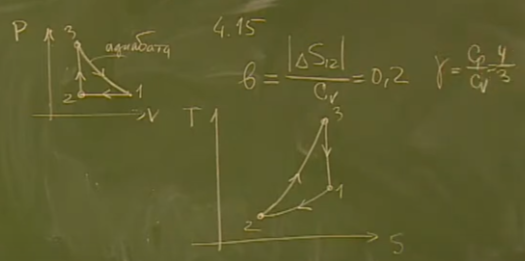 4.15
P
3
адиабата
2
1
V
b = |ΔS₁₂| / Cᵥ = 0,2
γ = Cₚ / Cᵥ = 4/3
T
3
1
2
S